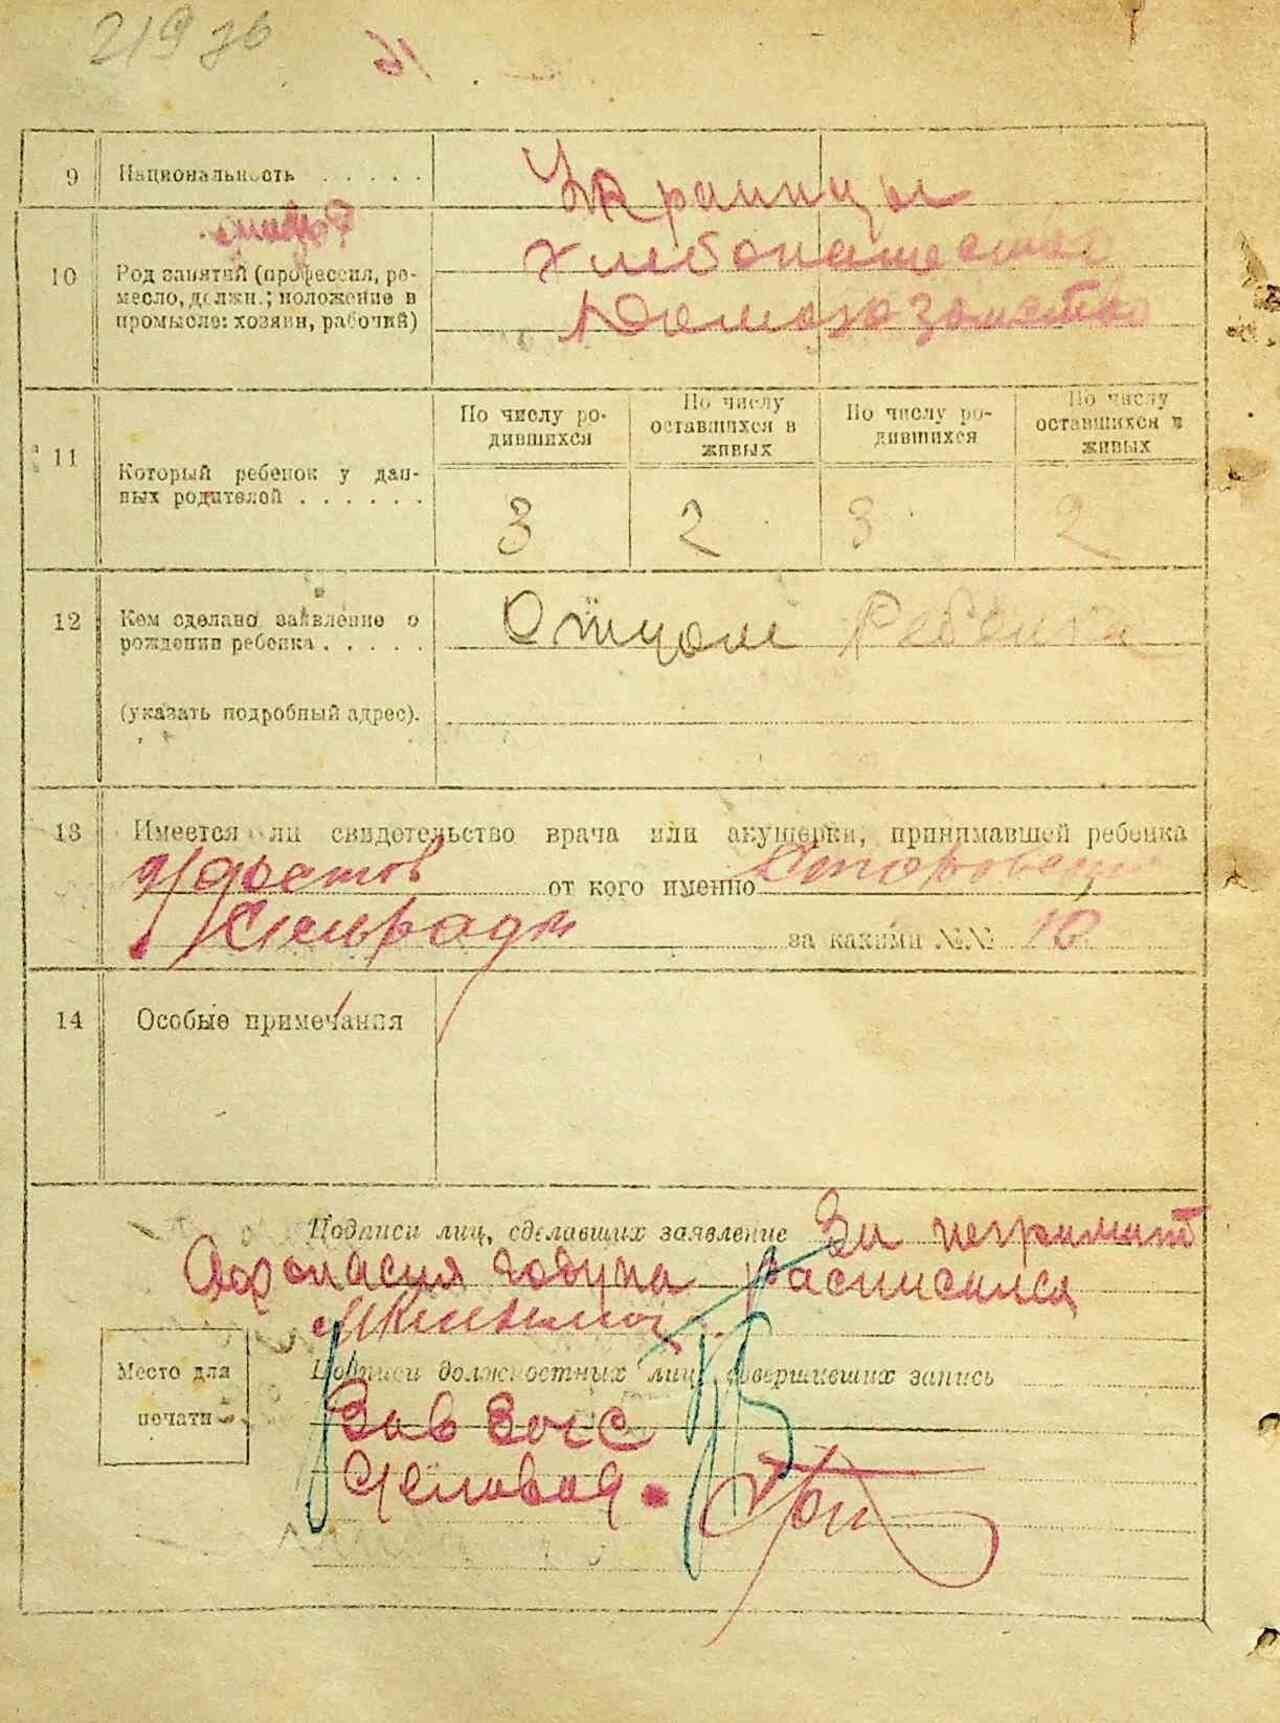 219 зв
9 Национальность . . . . . Украинцы
10 Род занятий (профессия, ре-
месло, должн.; положение в
промысле: хозяин, рабочий)
Хлебопашество
Домохозяйство
11 Который ребенок у дан-
ных родителей . . . . . .
По числу ро-
дившихся
По числу
оставшихся в
живых
По числу ро-
дившихся
По числу
оставшихся в
живых
3 2 3 2
12 Кем сделано заявление о
рождении ребенка . . . . .
Отцом Ребенка
(указать подробный адрес).
13 Имеется ли свидетельство врача или акушерки, принимавшей ребенка
от кого именно
Сельрады за какими №№ 10
14 Особые примечания
Подписи лиц, сделавших заявление За неграмот
Афонасия Годуна расписался
Подписи должностных лиц, совершивших запись
Место для
печати
Зав Загс
Деловод.